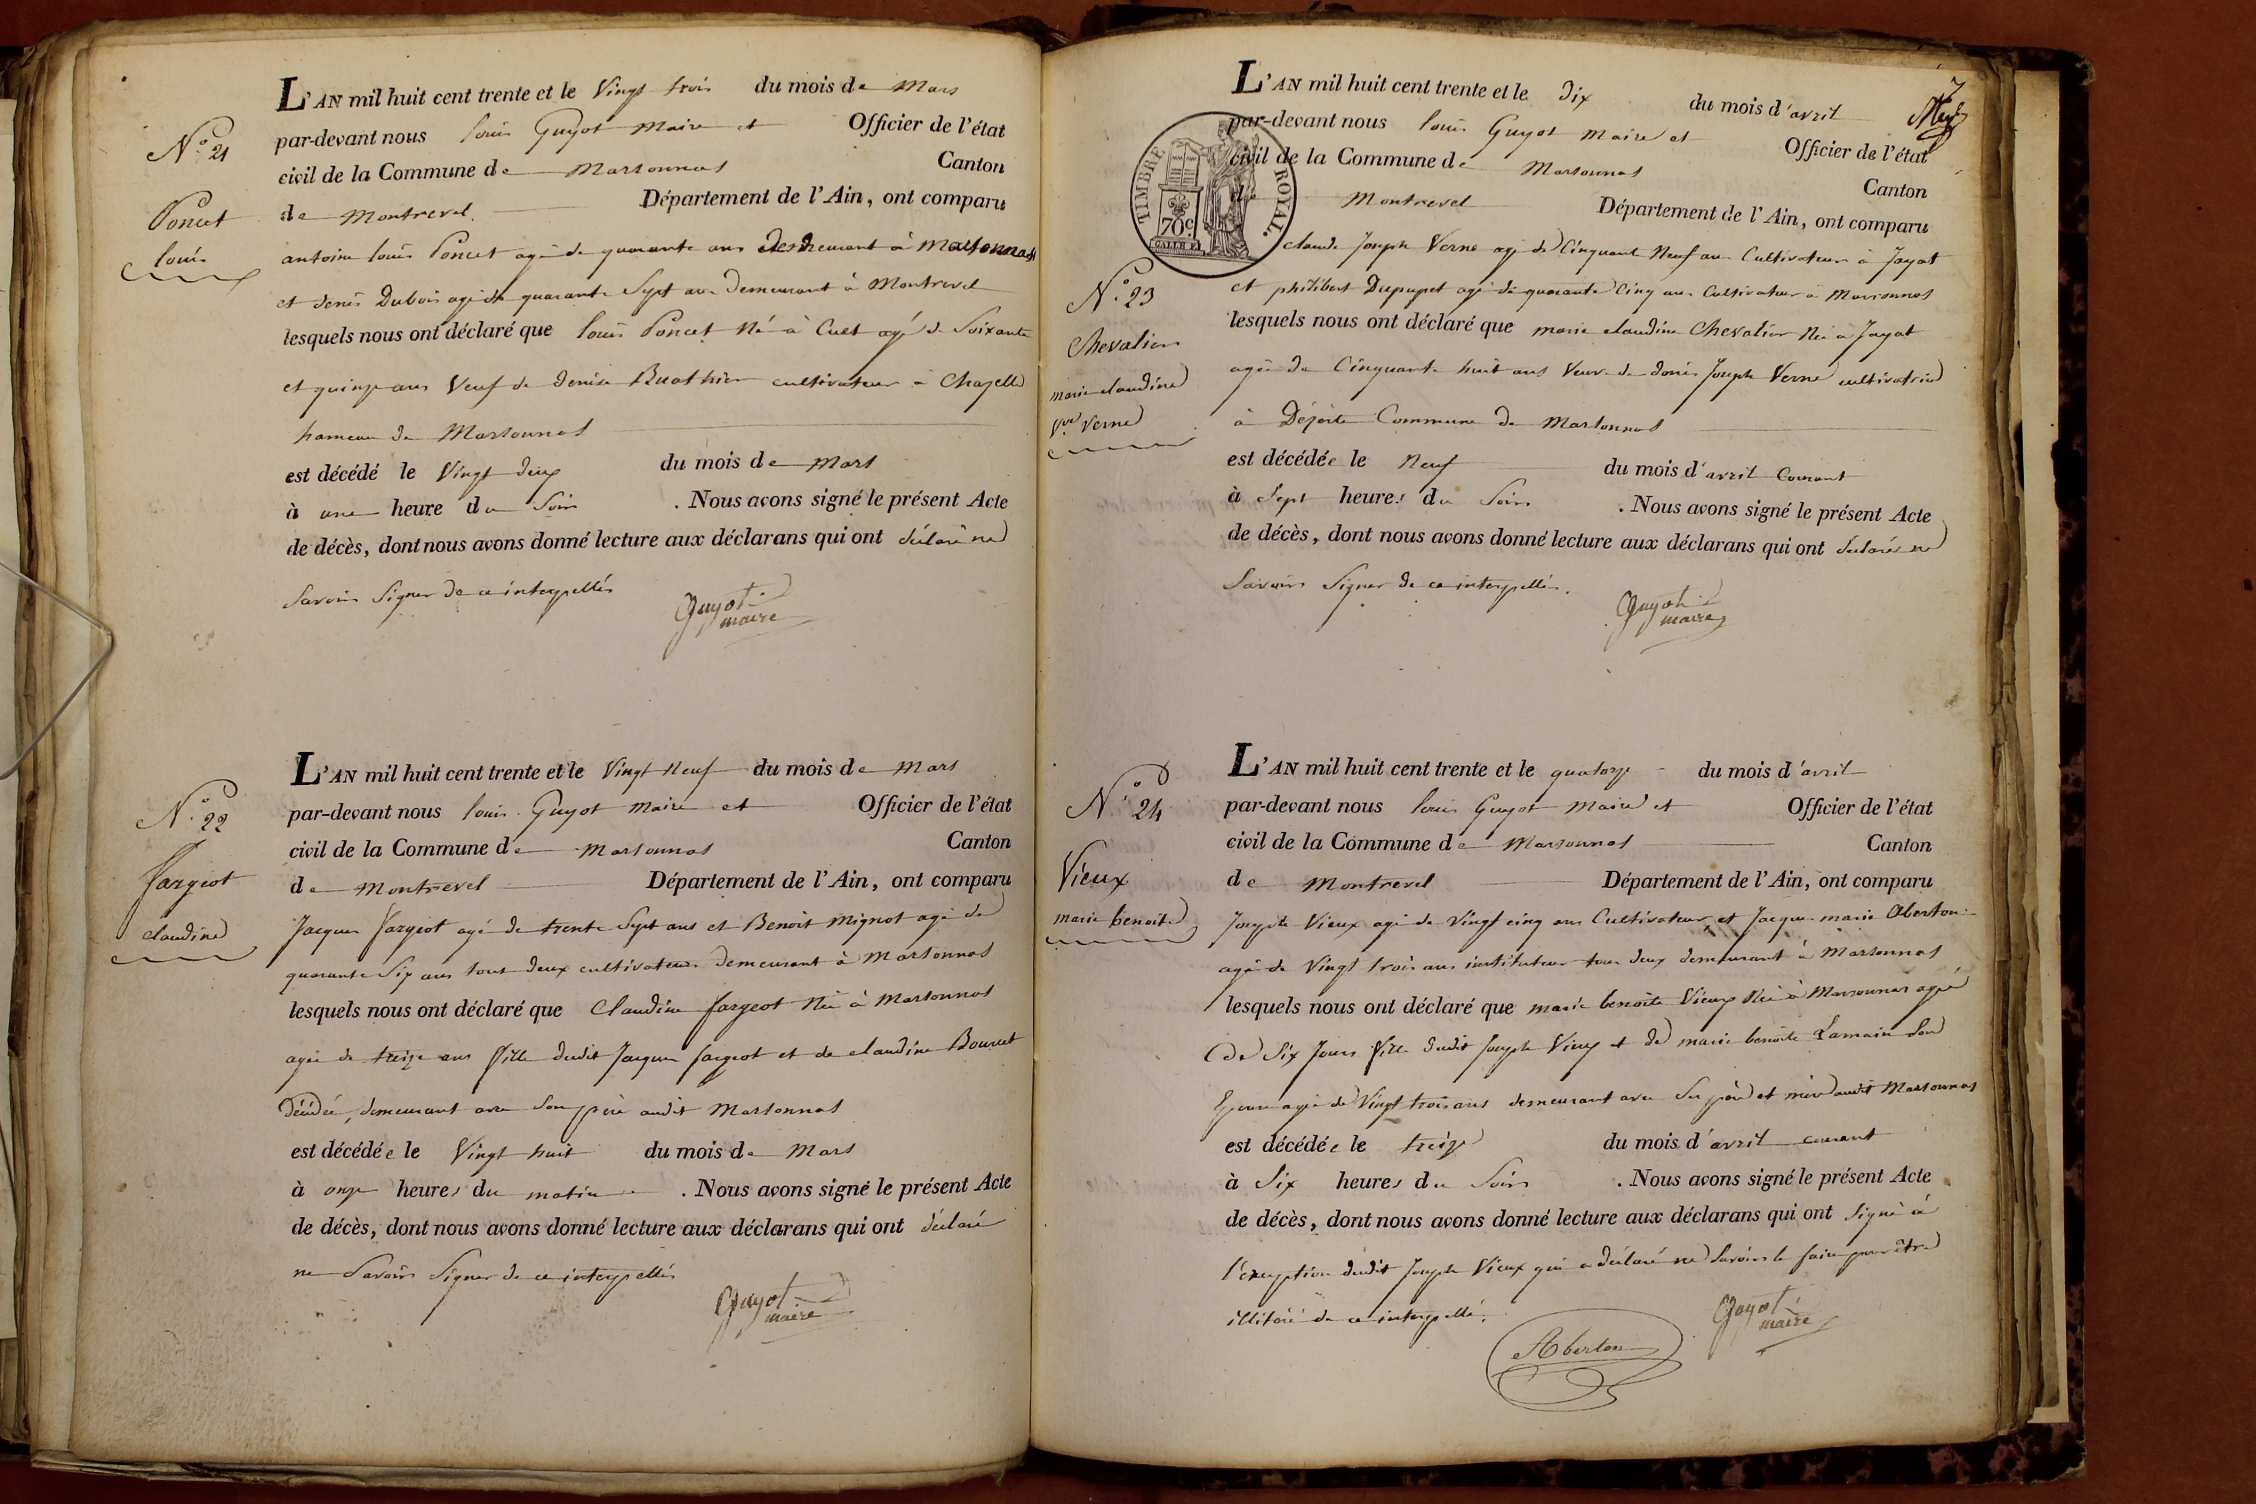 L'AN mil huit cent trente et le Vingt trois du mois de Mars
par-devant nous louis Guyot Maire et Officier de l'état
civil de la Commune de Marsonnas Canton
de Montrevel Département de l'Ain, ont comparu
N° 21
Poncet
louis
antoine louis Poncet agé de quarante ans demeurant à Marsonnas
et denis Dubois agé de quarante Sept ans demeurant à Montrevel
lesquels nous ont déclaré que louis Poncet Né à Cuet agé de Soixante
et quinze ans Veuf de denise Buathier cultivateur à Chazelle
hameau de Marsonnas
est décédé le Vingt deux du mois de Mars
à une heure du Soir . Nous avons signé le présent Acte
de décès, dont nous avons donné lecture aux déclarans qui ont déclaré ne
Savoir Signer de ce interpellés
Guyot
maire
L'AN mil huit cent trente et le Vingt Neuf du mois de Mars
par-devant nous louis Guyot Maire et Officier de l'état
civil de la Commune de Marsonnas Canton
de Montrevel Département de l'Ain, ont comparu
N° 22
fargeot
claudine
Jacques fargeot agé de trente Sept ans et Benoit Mignot agé de
quarante Six ans tous deux cultivateurs demeurant à Marsonnas
lesquels nous ont déclaré que Claudine fargeot Née à Marsonnas
agée de treize ans fille dudit Jacques fargeot et de claudine
décédée, demeurant avec Son père audit Marsonnas
est décédée le Vingt huit du mois de Mars
à onze heures du matin . Nous avons signé le présent Acte
de décès, dont nous avons donné lecture aux déclarans qui ont déclaré
ne Savoir Signer de ce interpellés
Guyot
maire
7
L'AN mil huit cent trente et le dix du mois d'avril
par-devant nous louis Guyot Maire et Officier de l'état
civil de la Commune de Marsonnas Canton
de Montrevel Département de l'Ain, ont comparu
TIMBRE ROYAL.
70c.
N° 23
Chevalier
marie claudine
Vve Verne
claude Joseph Verne agé de Cinquant Neuf ans Cultivateur à Jayat
et philibert Dupupet agé de quarante Cinq ans Cultivateur à Marsonnas
lesquels nous ont déclaré que marie claudine Chevalier Née à Jayat
agée de Cinquante huit ans Veuve de denis Joseph Verne cultivatrice
à Commune de Marsonnas
est décédée le Neuf du mois d'avril Courant
à Sept heures du Soir . Nous avons signé le présent Acte
de décès, dont nous avons donné lecture aux déclarans qui ont déclarés ne
Savoir Signer de ce interpellés.
Guyot
maire
L'AN mil huit cent trente et le quatorze du mois d'avril
par-devant nous louis Guyot Maire et Officier de l'état
civil de la Commune de Marsonnas Canton
de Montrevel Département de l'Ain, ont comparu
N° 24
Vieux
marie benoite
Joseph Vieux agé de Vingt cinq ans Cultivateur et Jacque marie Aberton
agé de Vingt trois ans instituteur tous deux demeurant à Marsonnas
lesquels nous ont déclaré que marie benoite Vieux Née à Marsonnas agée
de Six Jours fille dudit Joseph Vieux et de marie benoite Lamain Son
Epouse agée de Vingt trois ans demeurant avec Ses père et mère audit Marsonnas
est décédée le treize du mois d'avril courant
à Six heures du Soir . Nous avons signé le présent Acte
de décès, dont nous avons donné lecture aux déclarans qui ont Signé à
l'exception dudit Joseph Vieux qui a déclaré ne Savoir le faire pour être
illitéré de ce interpellé.
Guyot
maire
Aberton